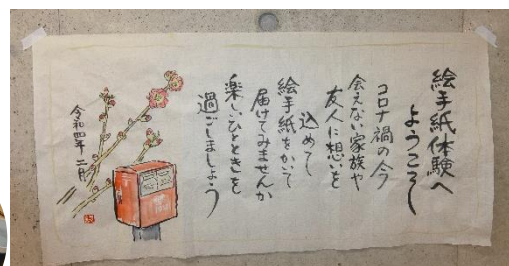 絵手紙体験へ
ようこそ
コロナ禍の今
会えない家族や
友人に想いを
込めて
絵手紙をかいて
届けてみませんか
楽しいひとときを
過ごしましょう
令和四年 二月